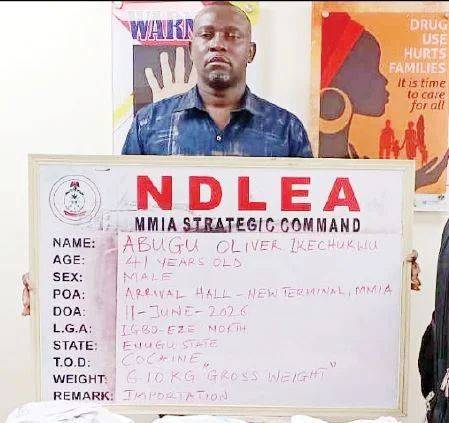 WARN
DRUG
USE
HURTS
FAMILIES
It is time
to care
for all
NDLEA
MMIA STRATEGIC COMMAND
NAME: ABUGU OLIVER IKECHUKWU
AGE: 41 YEARS OLD
SEX: MALE
POA: ARRIVAL HALL - NEW TERMINAL, MMIA
DOA: 11-JUNE-2026
L.G.A: IGBO-EZE NORTH
STATE: ENUGU STATE
T.O.D: COCAINE
WEIGHT: 6.10KG "GROSS WEIGHT"
REMARK: IMPORTATION